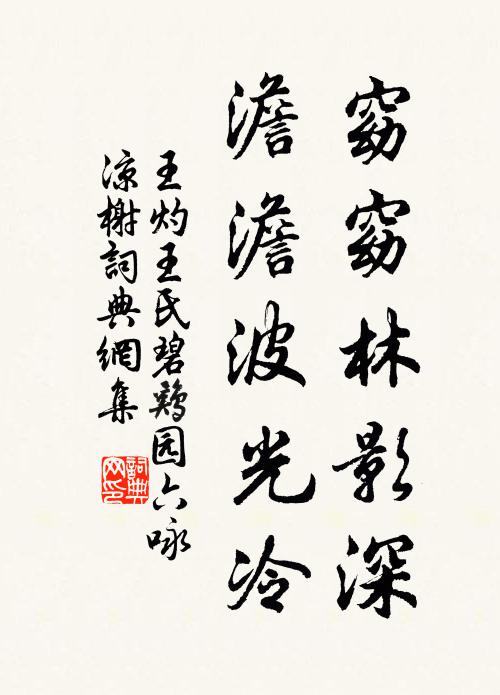 窈窈林影深
澹澹波光冷
王灼王氏碧鷄园六咏
凉榭詞典網集
詞典
网印